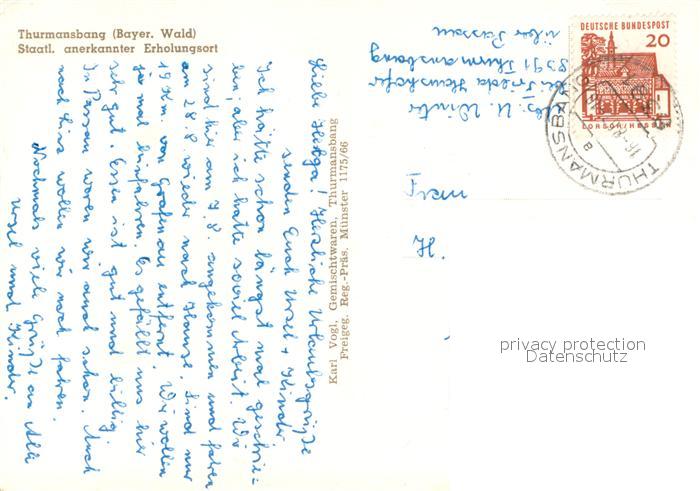 Thurmansbang (Bayer. Wald)
Staatl. anerkannter Erholungsort
DEUTSCHE BUNDESPOST
20
LORSCH/HESSEN
THURMANSBANG
Abs: U. Winter
bei Frieda
8391 Thurmansbang
über Passau
H.
Karl Vogl, Gemischtwaren, Thurmansbang
Freigeg. Reg.-Präs. Münster 1175/66
Liebe Helga! Herzliche Urlaubsgrüße
senden Euch Ursel + Kinder
Ich hätte schon längst mal geschrie-
ben, aber ich hatte soviel Arbeit. Wir
sind hier am 7.8. angekommen und fahren
am 28.8 wieder nach Hause. Sind nur
19 Km von Grafenau entfernt. Wir wollen
ja mal hinfahren. Es gefällt uns hier
sehr gut. Essen ist gut und billig.
In Passau waren wir auch schon. Auch
nach Linz wollen wir noch fahren.
Nochmals viele Grüße an Alle
Ursel und Kinder.
privacy protection
Datenschutz